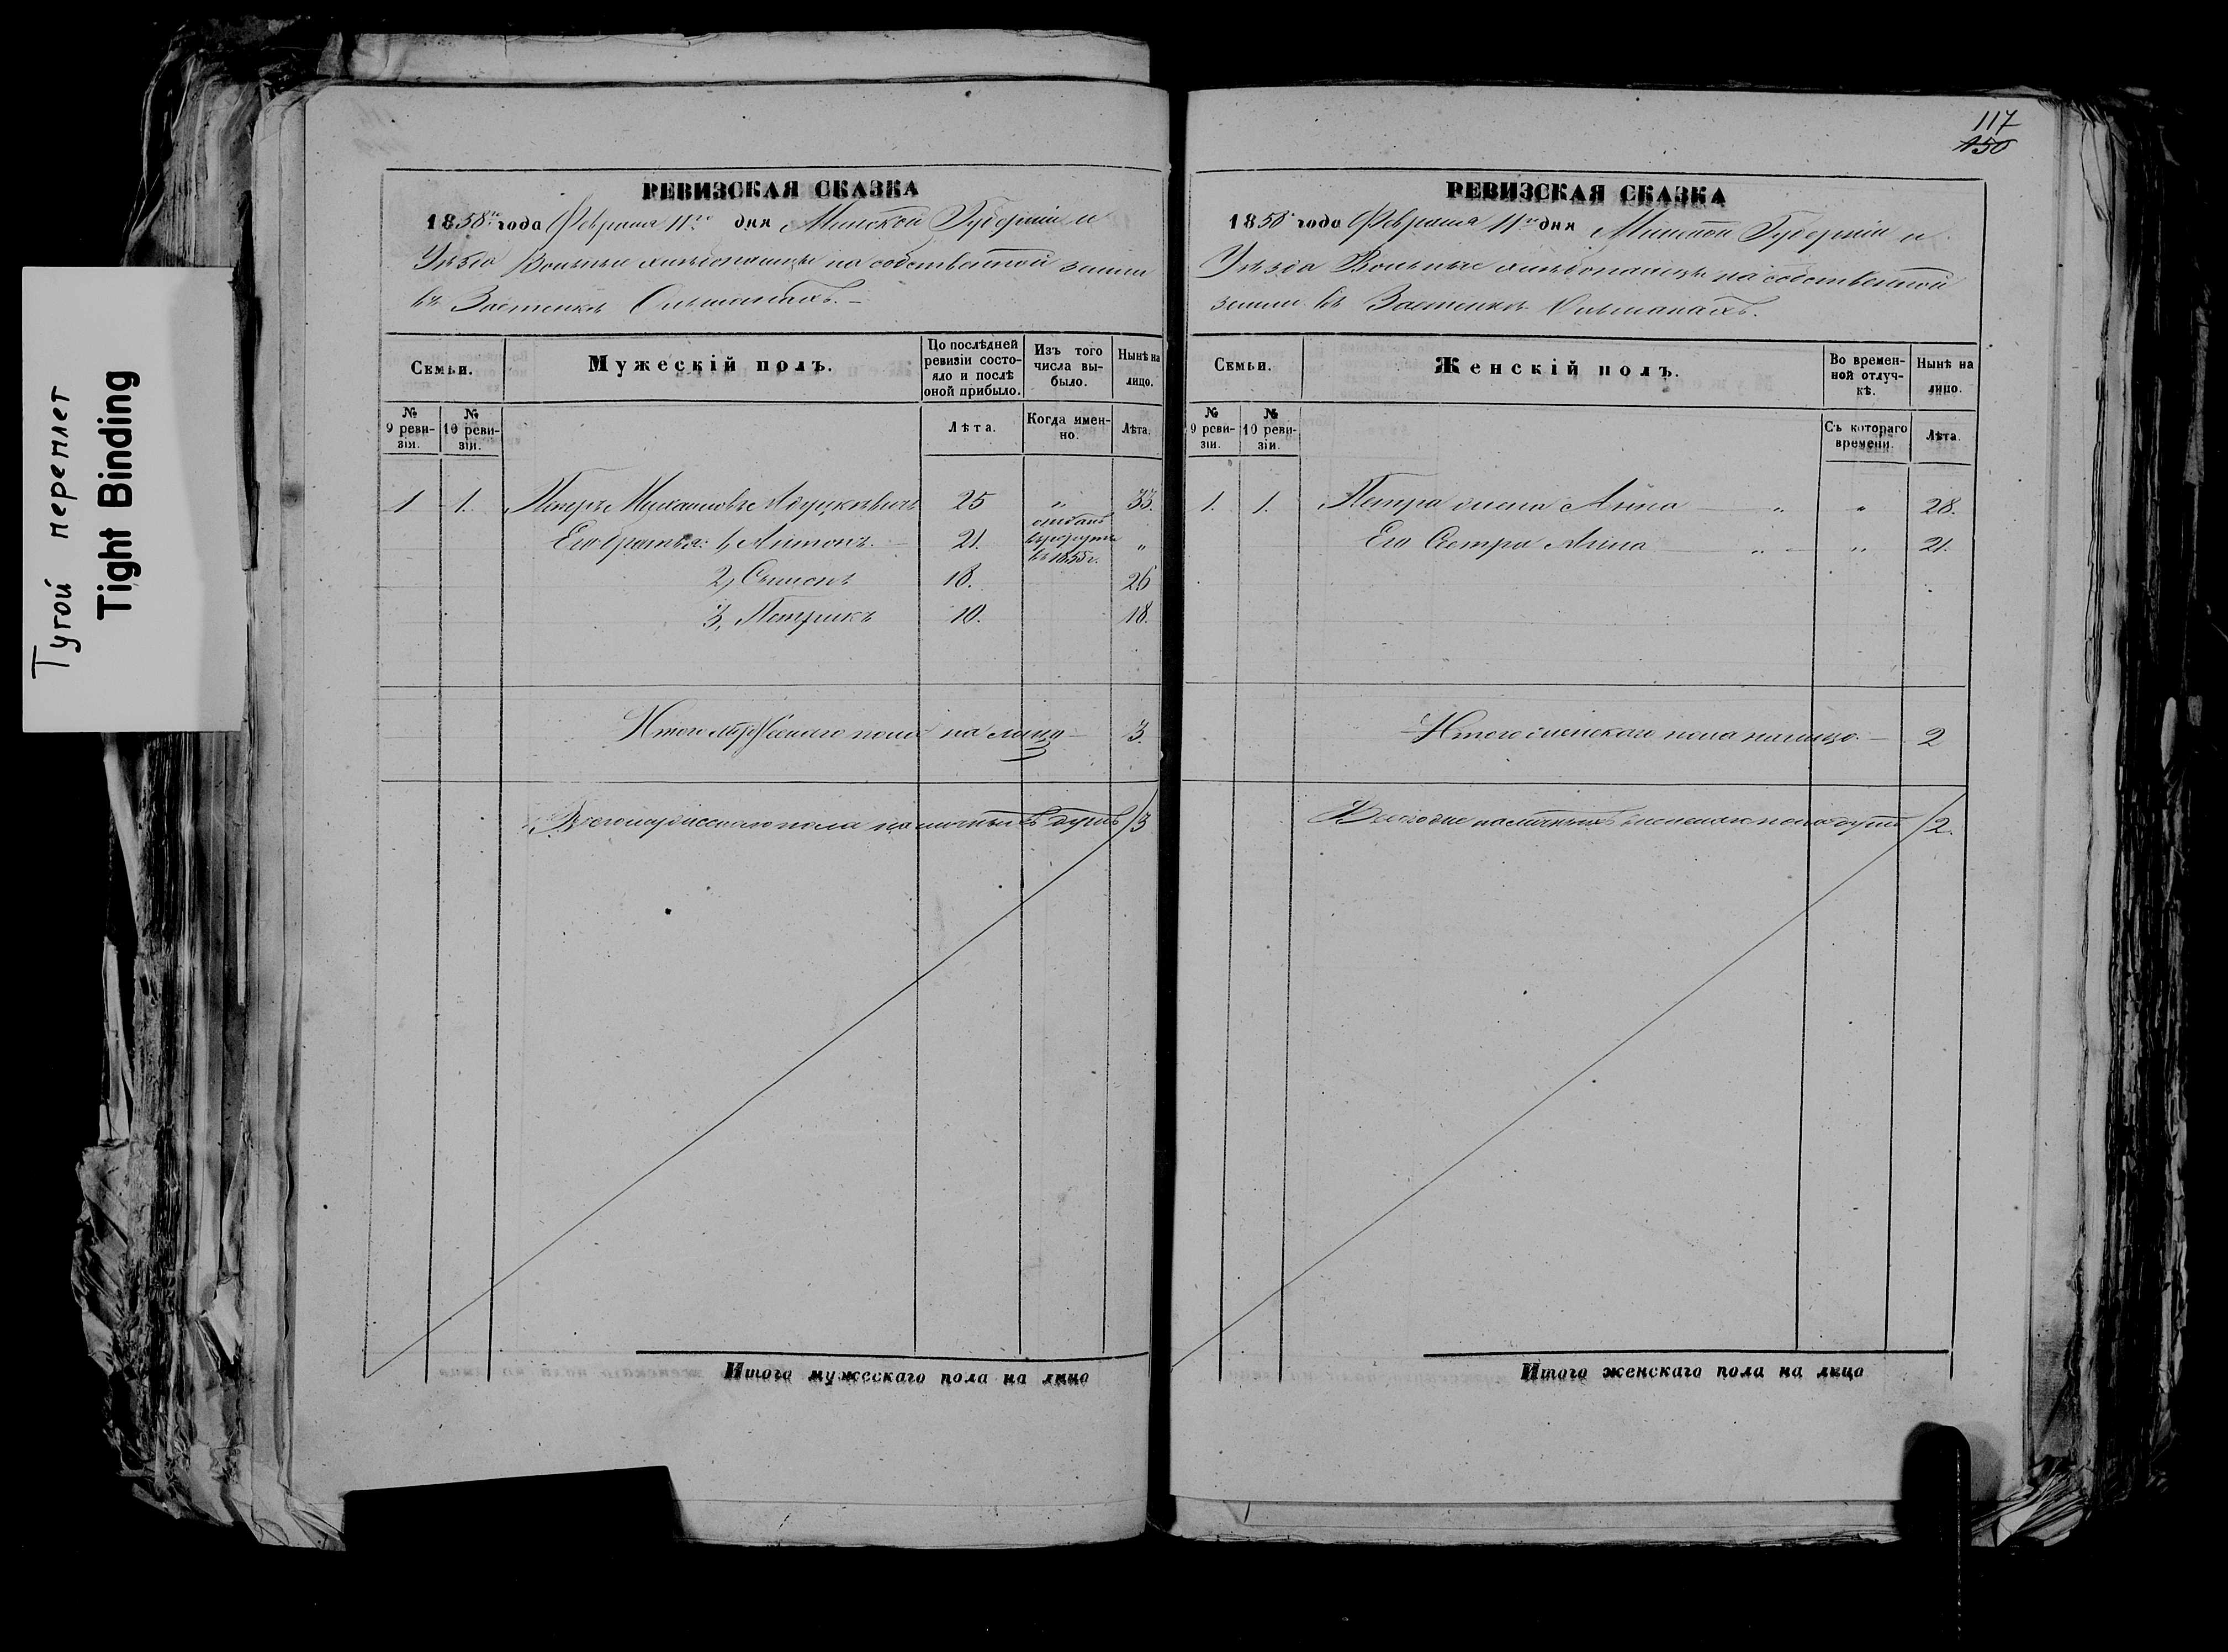 Тугой переплет
Tight Binding
РЕВИЗСКАЯ СКАЗКА
1858го года Февраля 11го дня Минской Губернии и
Уѣзда Вольные хлѣбопашцы на собственной земли
въ Застенкѣ Ольшанахъ. –
Семьи.
Мужескій полъ.
По послѣдней ревизіи состояло и послѣ оной прибыло.
Изъ того числа выбыло.
Нынѣ на лицо.
№ 9 ревизіи.
№ 10 ревизіи.
Лѣта.
Когда именно.
Лѣта.
1 1. Петръ Михаиловъ 25 „ 33.
Его братья: 1, Антонъ. – 21. отданъ въ рекруты въ 1855 г. „
2, Семенъ 18. 26
3, Петрикъ 10. 18.
Итого мужескаго пола на лицо – 3.
Всего мужескаго пола наличныхъ душъ 3
Итого мужескаго пола на лицо
117
150
РЕВИЗСКАЯ СКАЗКА
1858 года Февраля 11го дня Минской Губернии и
Уѣзда Вольные хлѣбопашцы на собственной
земли въ Застенкѣ Ольшанахъ.
Семьи.
Женскій полъ.
Во временной отлучкѣ.
Нынѣ на лицо.
№ 9 ревизіи.
№ 10 ревизіи.
Съ котораго времени.
Лѣта.
1. 1. Петра жена Анна „ „ 28.
Его Сестра Анна „ „ 21.
Итого женскаго пола налицо. – 2
наличныхъ женскаго пола душъ 2.
Итого женскаго пола на лицо